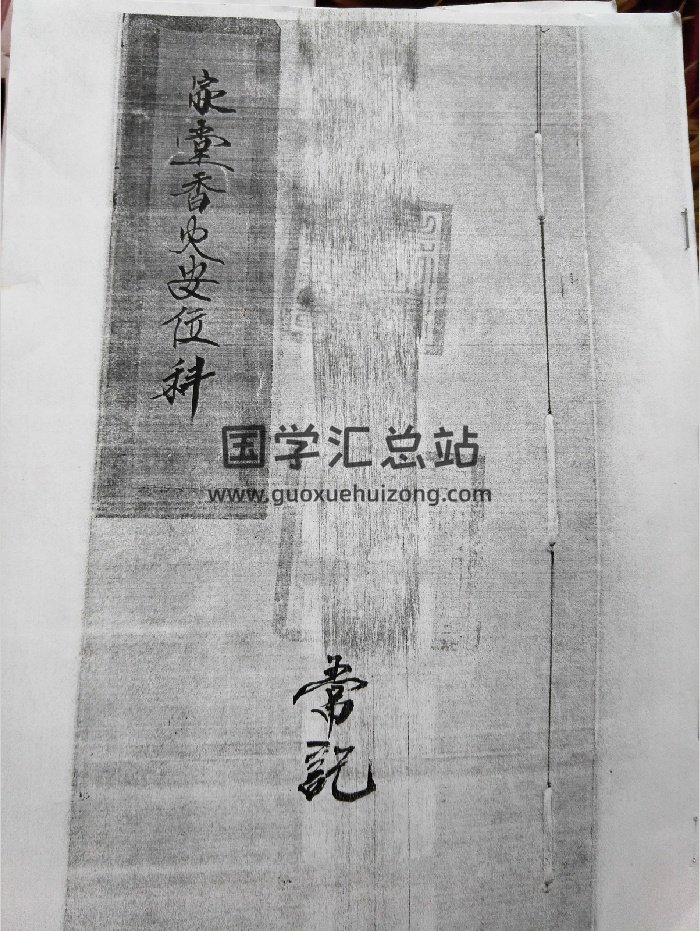 家堂香火安位科
国学汇总站
www.guoxuehuizong.com
常記